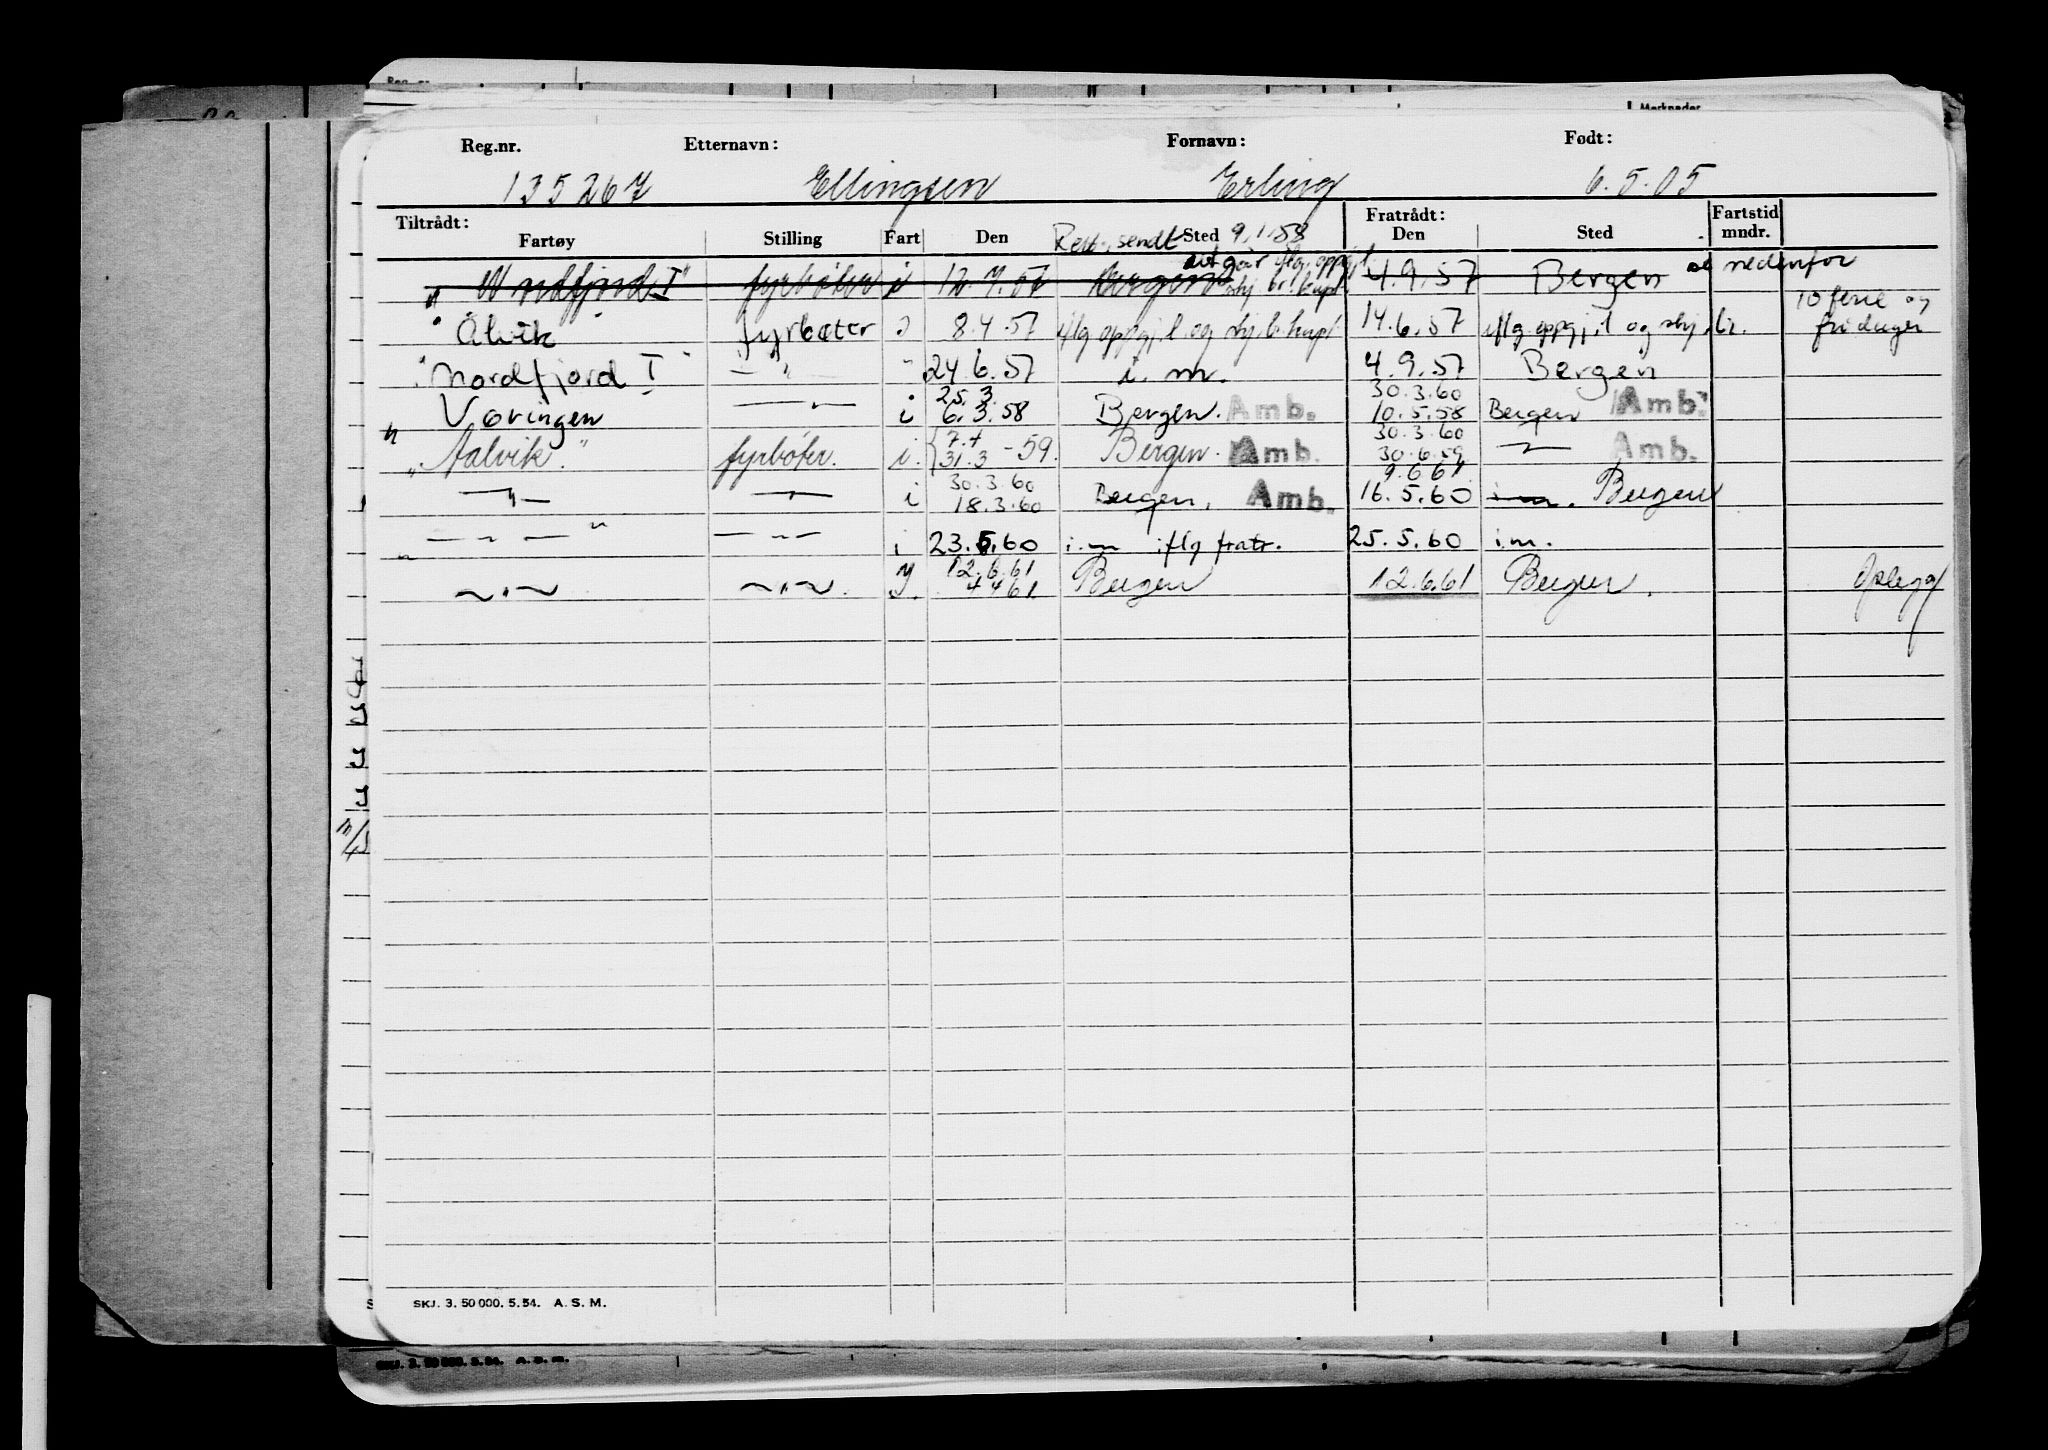 Reg.nr. Etternavn: Fornavn: Født:
135267 Ellingsen Erling 6.5.05
Tiltrådt: Fratrådt: Fartstid
Fartøy Stilling Fart Den Sted Den Sted mndr.
sendt 9.1.58
utgår iflg. oppgj. l.
"Nordfjord I" fyrbøter i 12.7.57 Bergen 4.9.57 Bergen se nedenfor
10 ferie og
"Ålvik" fyrbøter i 8.4.57 iflg oppgj. l og skj. b. hupt 14.6.57 iflg. oppgj. l og skj. br. fridager
"Nordfjord I" —"— " 24.6.57 i. m. 4.9.57 Bergen
25.3. 30.3.60
" Vøringen —"— i 6.3.58 Bergen. Amb. 10.5.58 Bergen Amb.
7.4 30.3.60
"Aalvik." fyrbøter. i. 31.3 -59. Bergen. Amb. 30.6.59 —"— Amb.
30.3.60 9.6.61
—"— —"— i 18.3.60 Bergen. Amb. 16.5.60 i m. Bergen
" —"— " —"— i 23.5.60 i.m iflg fratr. 25.5.60 i.m.
12.6.61
—"— —"—. y. 4.4.61 Bergen 12.6.61 Bergen. Oplegg
SKJ. 3. 50 000. 5. 54. A. S. M.